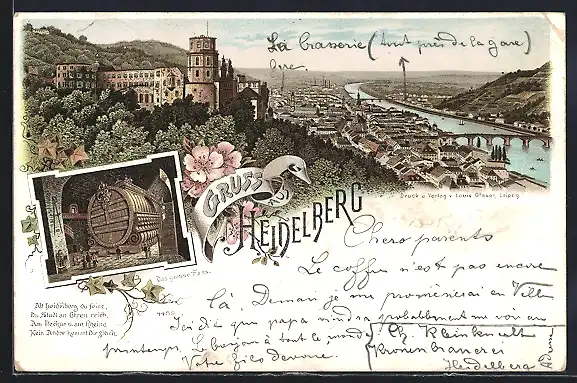 La brasserie (tout près de la gare)
GRUSS AUS
HEIDELBERG
Druck u. Verlag v. Louis Glaser, Leipzig
Das grosse Fass.
Alt Heidelberg, du feine,
Du Stadt an Ehren reich,
Am Neckar u. am Rheine
Kein' Andre kommt dir gleich.
Chers parents
Le coffre n'est pas encore
là. Demain je me promènerai en Ville
J'ai dit que papa viendra probablement me voir au
printemps. Le bonjour à tout le monde
Votre fils dévoué
Ch. Kleinknecht
Kronenbrauerei
Heidelberg